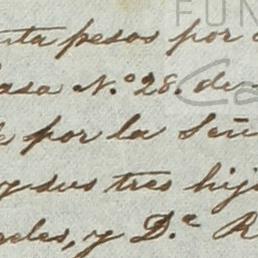 FUN
nta pesos por
casa N.º 28. de
por la Señ
y sus tres hij
eles, y D.ª R